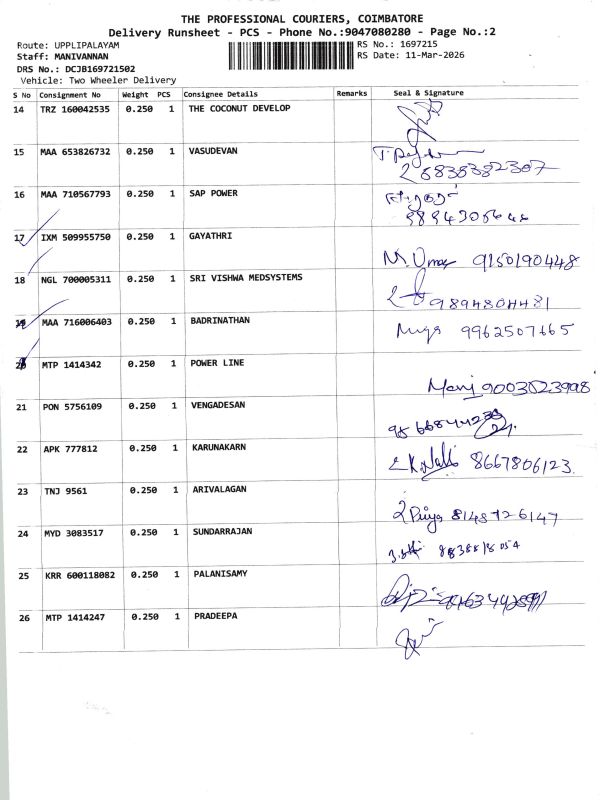 THE PROFESSIONAL COURIERS, COIMBATORE
Delivery Runsheet - PCS - Phone No.:9047080280 - Page No.:2
Route: UPPLIPALAYAM RS No.: 1697215
Staff: MANIVANNAN RS Date: 11-Mar-2026
DRS No.: DCJB169721502
Vehicle: Two Wheeler Delivery
S No Consignment No Weight PCS Consignee Details Remarks Seal & Signature
14 TRZ 160042535 0.250 1 THE COCONUT DEVELOP
15 MAA 653826732 0.250 1 VASUDEVAN
16 MAA 710567793 0.250 1 SAP POWER
17 IXM 509955750 0.250 1 GAYATHRI
M. Umar 9150190448
18 NGL 700005311 0.250 1 SRI VISHWA MEDSYSTEMS
9894804431
19 MAA 716006403 0.250 1 BADRINATHAN
9962507665
20 MTP 1414342 0.250 1 POWER LINE
Mani 9003523998
21 PON 5756109 0.250 1 VENGADESAN
22 APK 777812 0.250 1 KARUNAKARN
8667806123
23 TNJ 9561 0.250 1 ARIVALAGAN
Priya 8148726147
24 MYD 3083517 0.250 1 SUNDARRAJAN
25 KRR 600118082 0.250 1 PALANISAMY
26 MTP 1414247 0.250 1 PRADEEPA